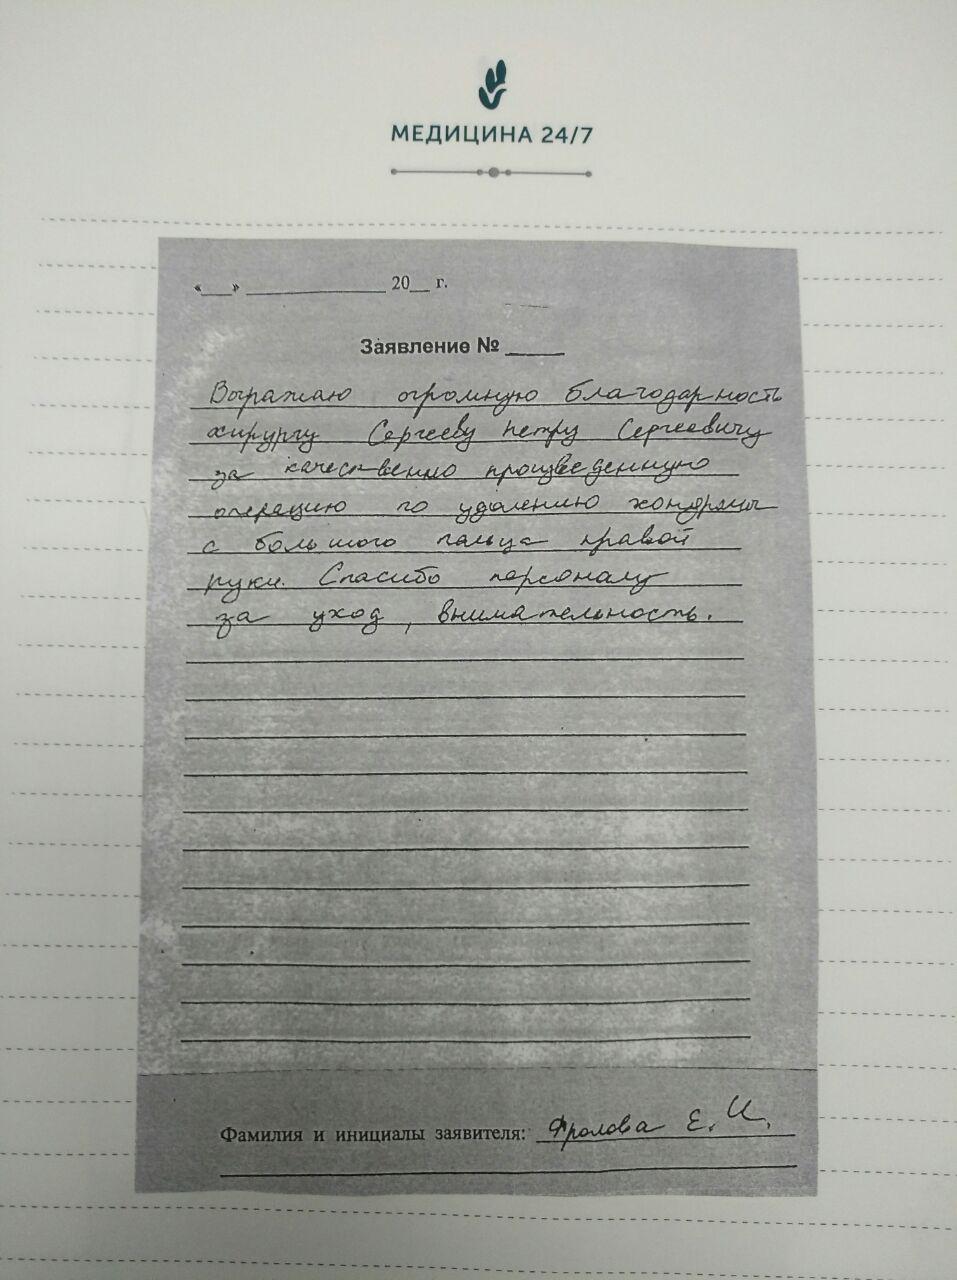 МЕДИЦИНА 24/7
«___» ______________ 20__ г.
Заявление № _____
Выражаю огромную благодарность
хирургу Сергееву Петру Сергеевичу
за качественно произведенную
операцию по удалению хондромы
с большого пальца правой
руки. Спасибо персоналу
за уход, внимательность.
Фамилия и инициалы заявителя: Фролова Е. И.